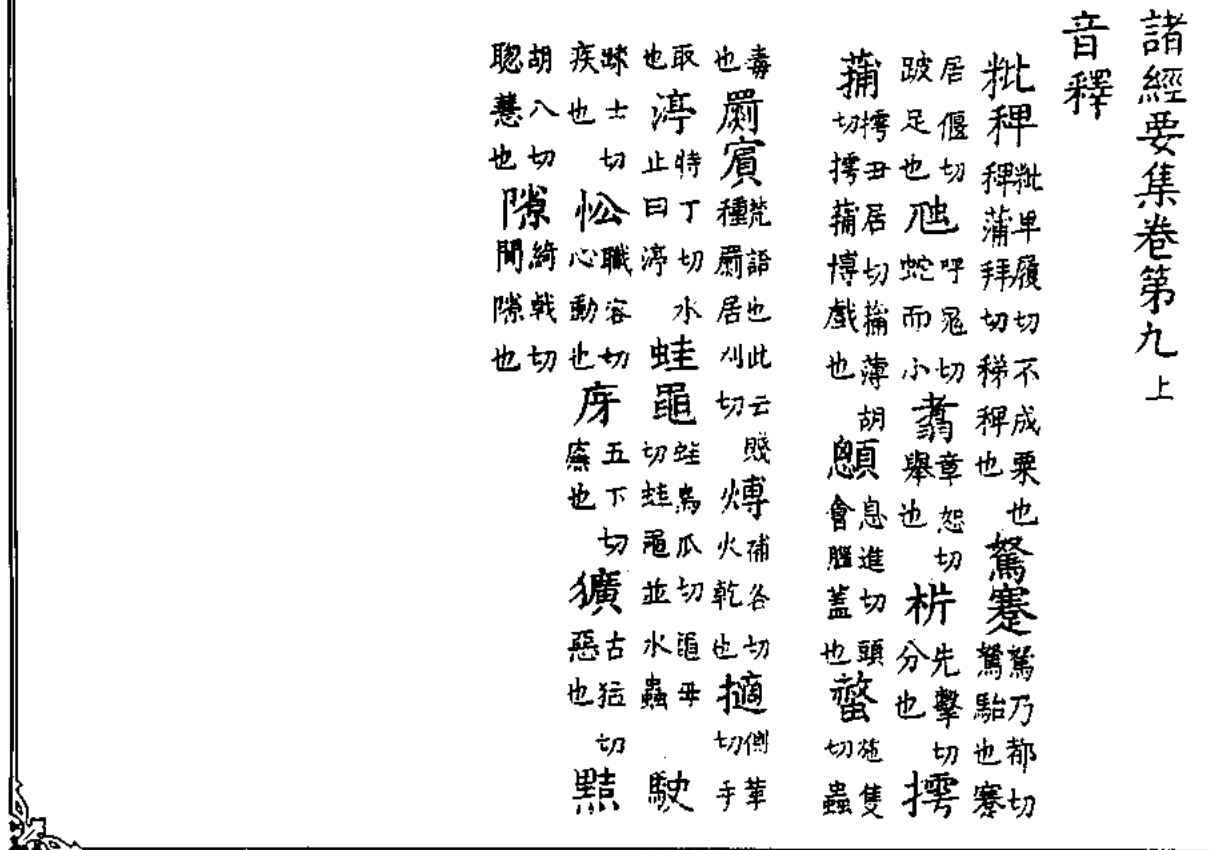 諸經要集卷第九上
音釋
粃稗粃卑履切不成粟也稗蒲拜切稊稗也駑蹇駑乃都切駑駘也蹇
居偃切跛足也虺呼鬼切蛇而小翥章恕切舉也析先擊切分也摴
蒱摴丑居切蒱薄胡切摴蒱博戲也顖息進切頭會腦蓋也螫施隻切蟲
毒也罽賓梵語也此云賤種罽居刈切煿補各切火乾也擿側革切手
取也渟特丁切水止曰渟蛙黽蛙烏瓜切黽母切蛙黽並水蟲駛
踈士切疾也忪職容切心動也庌五下切廡也獷古猛切惡也黠
胡八切聰慧也隙綺戟切間隙也